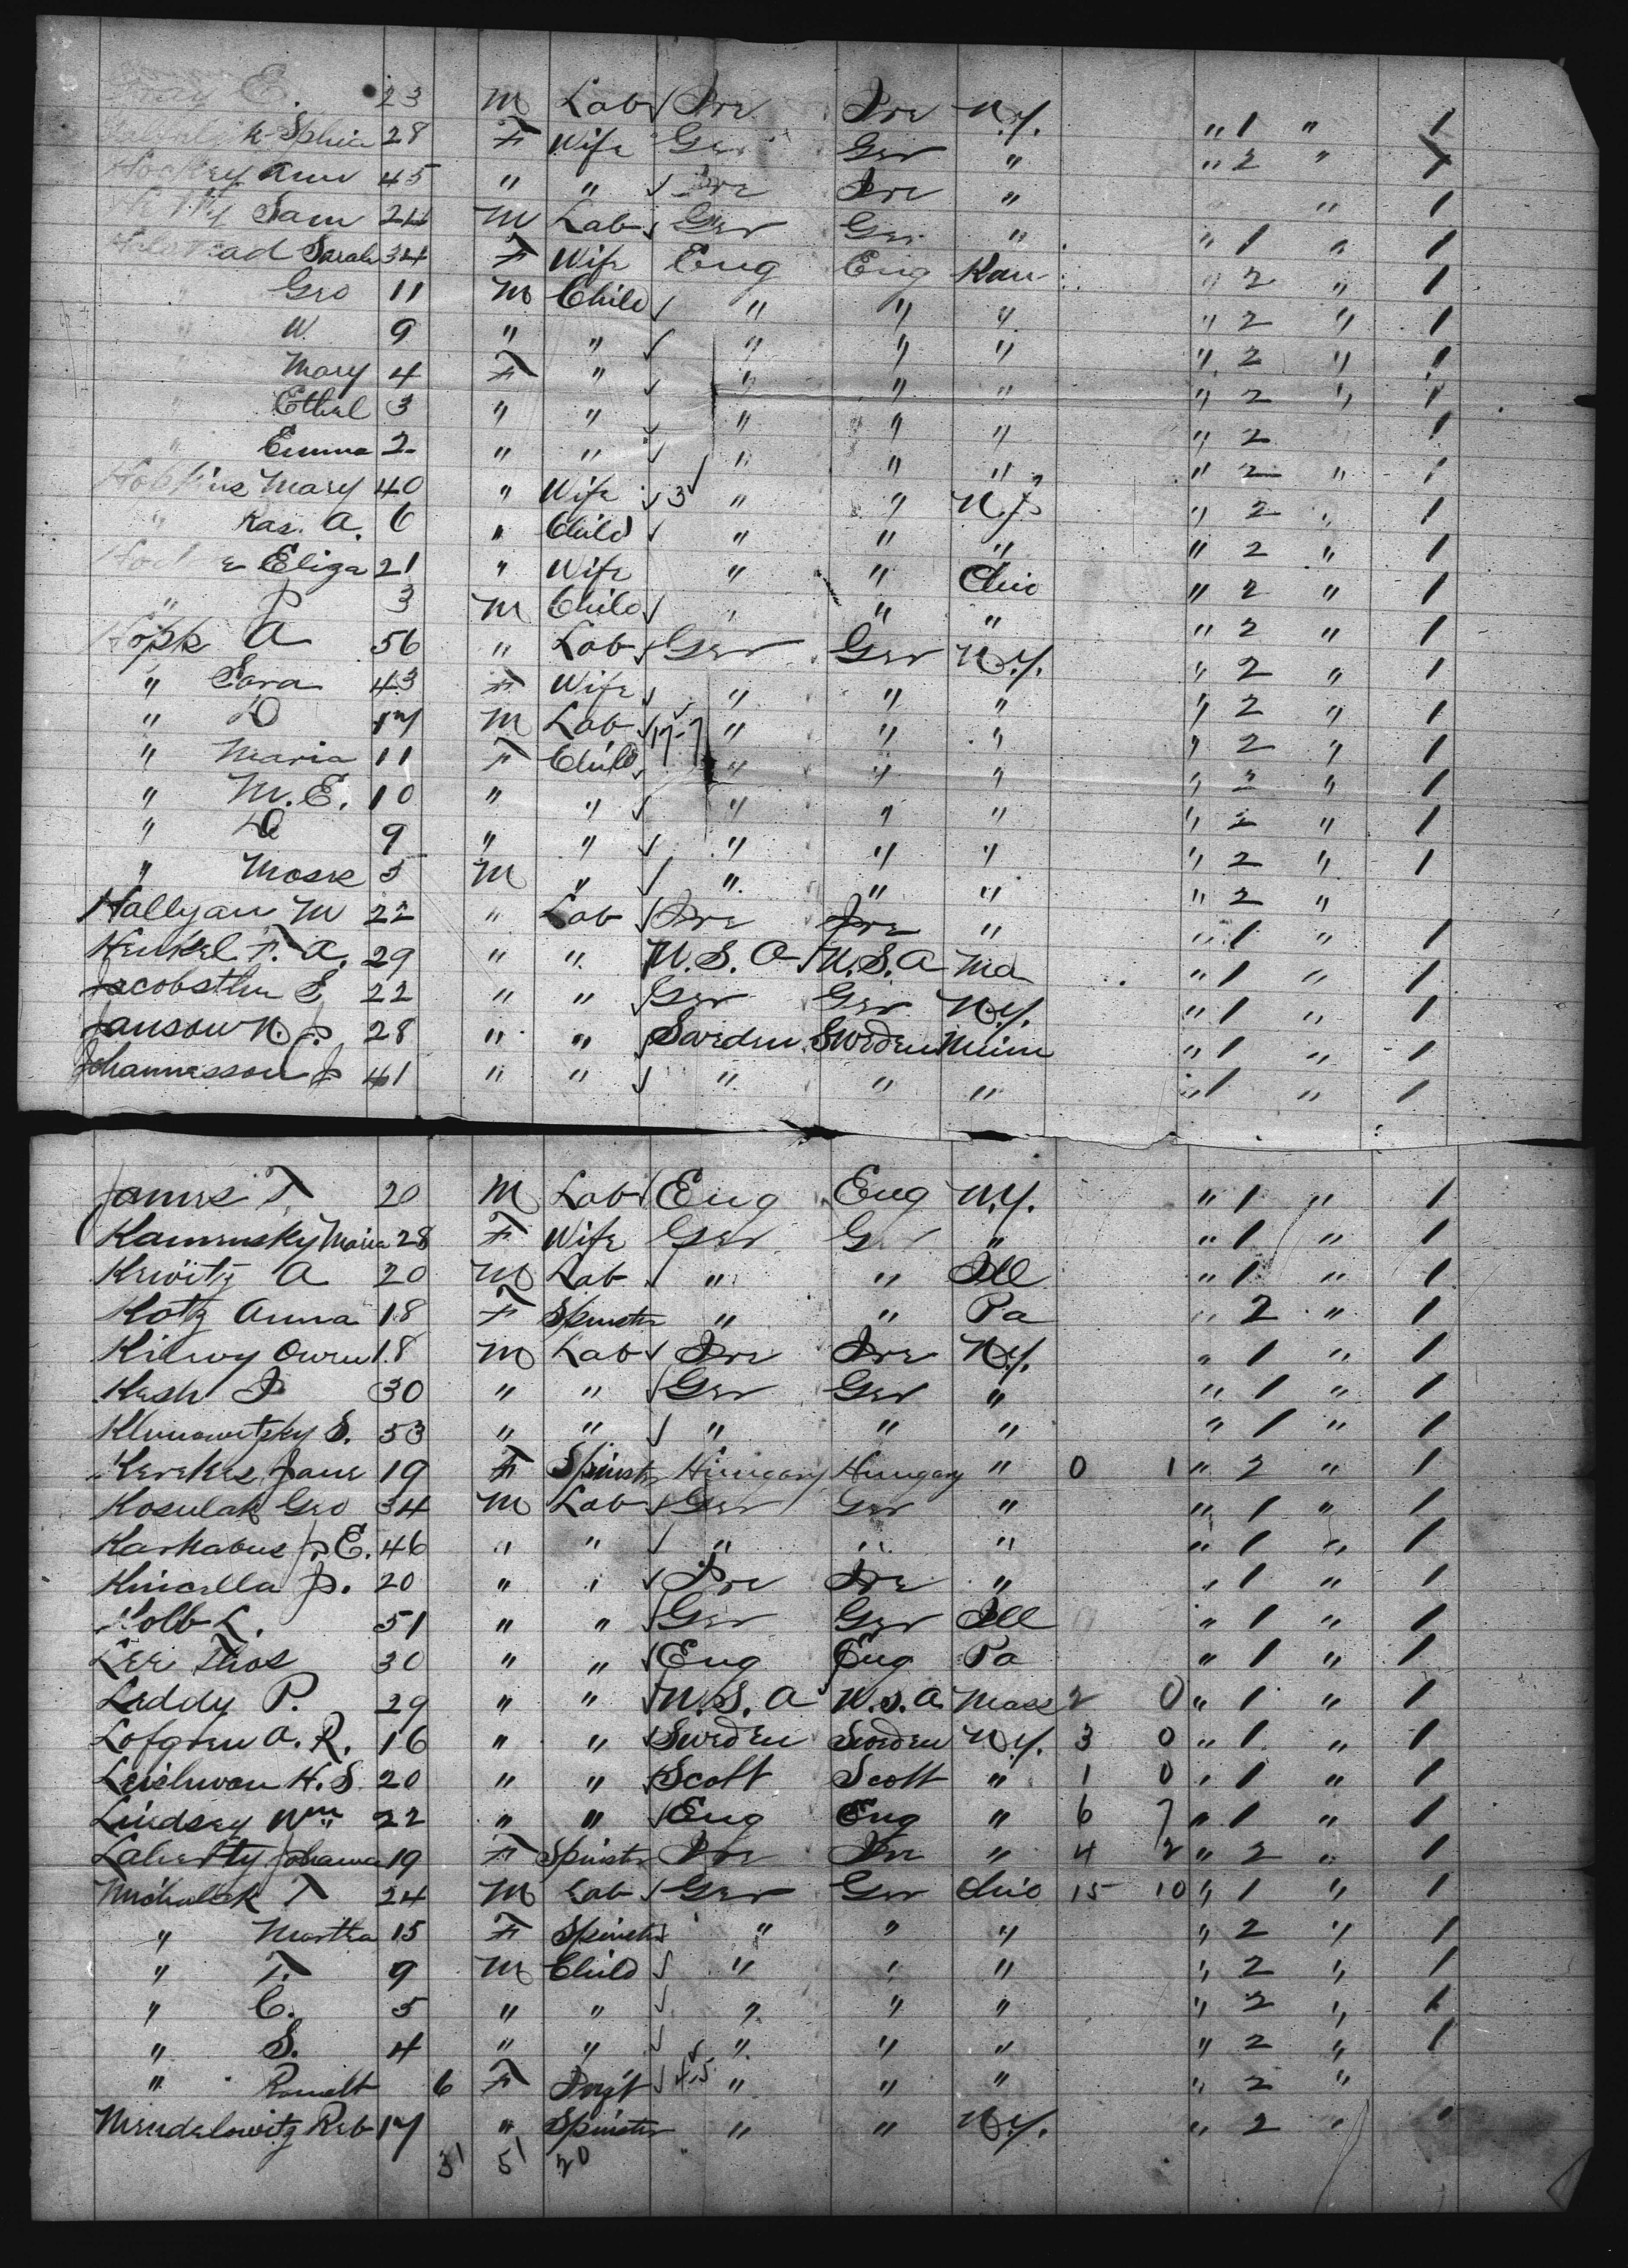 Gray E. 23 M Lab Ire Ire N.y. " 1 " 1
Sphia 28 F Wife Ger Ger " " 2 " 1
Hockey Ann 45 " " Ire Ire " " " 1
Sam 24 M Lab Ger Ger " " 1 " 1
Sarah 34 F Wife Eng Eng Kan " 2 " 1
" Geo 11 M Child " " " " 2 " 1
" W. 9 " " " " " " 2 " 1
" Mary 4 F " " " " " 2 " 1
" Ethel 3 " " " " " " 2 1
" Emma 2 " " " " " " 2 " 1
Hobkins Mary 40 " Wife 3 " " N.J. " 2 " 1
" Kas. A. 6 " Child " " " " 2 " 1
Eliza 21 " Wife " " Ohio " 2 " 1
" J 3 M Child " " " " 2 " 1
Hopk A 56 " Lab Ger Ger N.y. " 2 " 1
" Sara 43 F Wife " " " " 2 " 1
" D 17 M Lab 17-7 " " " " 2 " 1
" Maria 11 F Child " " " " 2 " 1
" M. E. 10 " " " " " " 2 " 1
" 9 " " " " " " 2 " 1
" Mose 5 M " " " " " 2 "
Hallyan M 22 " Lab Ire Ire " " 1 " 1
Henkel F. A. 29 " " U.S.A U.S.A Ma " 1 " 1
Jacobsthn S 22 " " Ger Ger N.y. " 1 " 1
Janson N. J. 28 " " Sweden Sweden Minn " 1 " 1
Johannesson J 41 " " " " " " 1 " 1
James T. 20 M Lab Eng Eng N.y. " 1 " 1
Kaminsky Maria 28 F Wife Ger Ger " " 1 " 1
Kewitz A 20 M Lab " " Ill " 1 " 1
Kotz Anna 18 F Spinster " " Pa " 2 " 1
Owen 18 M Lab Ire Ire N.y. " 1 " 1
Kesh J 30 " " Ger Ger " " 1 " 1
Klimowitzky S. 53 " " " " " " 1 " 1
Kerekes Jane 19 F Spinster Hungary Hungary " 0 1 " 2 " 1
Kosulak Geo 34 M Lab Ger Ger " " 1 " 1
Karkabus J. E. 46 " " " " " " 1 " 1
Kincella J. 20 " " Ire Ire " " 1 " 1
Kolb L. 51 " " Ger Ger Ill " 1 " 1
Lee Thos 30 " " Eng Eng Pa " 1 " 1
Leddy P. 29 " " U.S.A U.S.A. Mass 2 0 " 1 " 1
Lofgren A. R. 16 " " Sweden Sweden N.y. 3 0 " 1 " 1
Leishman H. S. 20 " " Scott Scott " 1 0 " 1 " 1
Lindsey Wm 22 " " Eng Eng " 6 7 " 1 " 1
Laherty Johanna 19 F Spinster Ire Ire " 4 2 " 2 " 1
Michalek T 24 M Lab Ger Ger Ohio 15 10 " 1 " 1
" Martha 15 F Spinster " " " " 2 " 1
" T. 9 M Child " " " " 2 " 1
" C. 5 " " " " " " 2 " 1
" S. 4 " " " " " " 2 " 1
" 6 F Inft 4.5 " " " " 2 "
Mendelowitz Reb 17 " Spinster " " N.y. " 2 " "
31 51 20